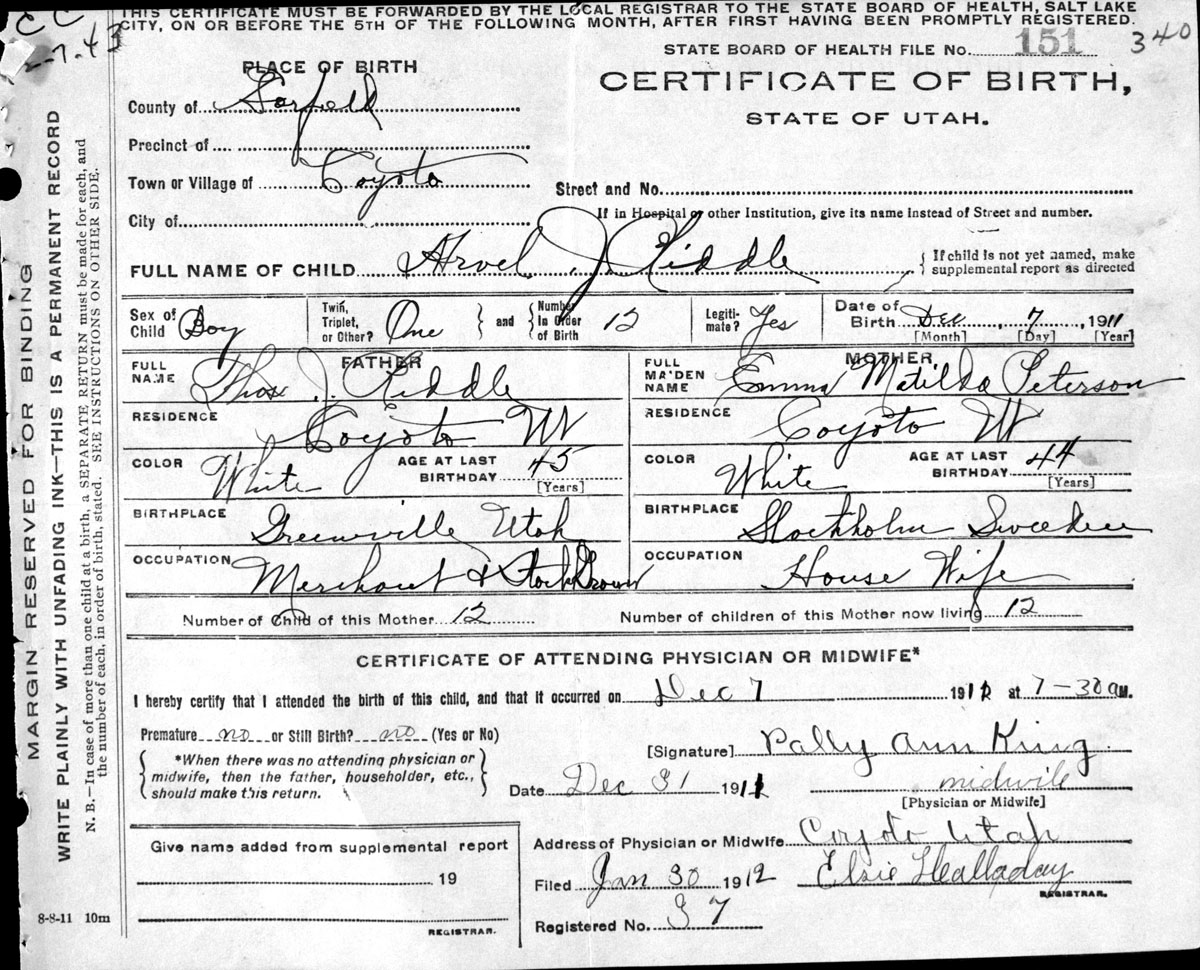 THIS CERTIFICATE MUST BE FORWARDED BY THE LOCAL REGISTRAR TO THE STATE BOARD OF HEALTH, SALT LAKE
CITY, ON OR BEFORE THE 5TH OF THE FOLLOWING MONTH, AFTER FIRST HAVING BEEN PROMPTLY REGISTERED.
STATE BOARD OF HEALTH FILE No. 151 340
CERTIFICATE OF BIRTH,
STATE OF UTAH.
PLACE OF BIRTH
County of Garfield
Precinct of
Town or Village of Coyoto
Street and No.
City of
If in Hospital or other Institution, give its name instead of Street and number.
FULL NAME OF CHILD Arvel J Riddle
If child is not yet named, make
supplemental report as directed
Sex of Child Boy
Twin, Triplet, or Other? One
and Number In Order of Birth 12
Legitimate? Yes
Date of Birth Dec, 7, 1911
[Month] [Day] [Year]
FATHER
FULL NAME Thos J. Riddle
RESIDENCE Coyoto Ut
COLOR White
AGE AT LAST BIRTHDAY 45
[Years]
BIRTHPLACE Greenville Utah
OCCUPATION Merchant & Stock Grower
MOTHER
FULL MAIDEN NAME Emma Matilda Peterson
RESIDENCE Coyoto Ut
COLOR White
AGE AT LAST BIRTHDAY 44
[Years]
BIRTHPLACE Stockholm Sweeden
OCCUPATION House Wife
Number of Child of this Mother 12
Number of children of this Mother now living 12
CERTIFICATE OF ATTENDING PHYSICIAN OR MIDWIFE*
I hereby certify that I attended the birth of this child, and that it occurred on Dec 7 1911 at 7-30 a M.
Premature no or Still Birth? no (Yes or No)
*When there was no attending physician or
midwife, then the father, householder, etc.,
should make this return.
[Signature] Pally Ann King
midwife
[Physician or Midwife]
Date Dec 31 1911
Address of Physician or Midwife Coyoto Utah
Filed Jan 30 1912 Elsie Halladay
REGISTRAR.
Registered No. 37
Give name added from supplemental report
19
REGISTRAR.
8-8-11 10m
MARGIN RESERVED FOR BINDING
WRITE PLAINLY WITH UNFADING INK—THIS IS A PERMANENT RECORD
N. B.—In case of more than one child at a birth, a SEPARATE RETURN must be made for each, and
the number of each, in order of birth, stated. SEE INSTRUCTIONS ON OTHER SIDE.